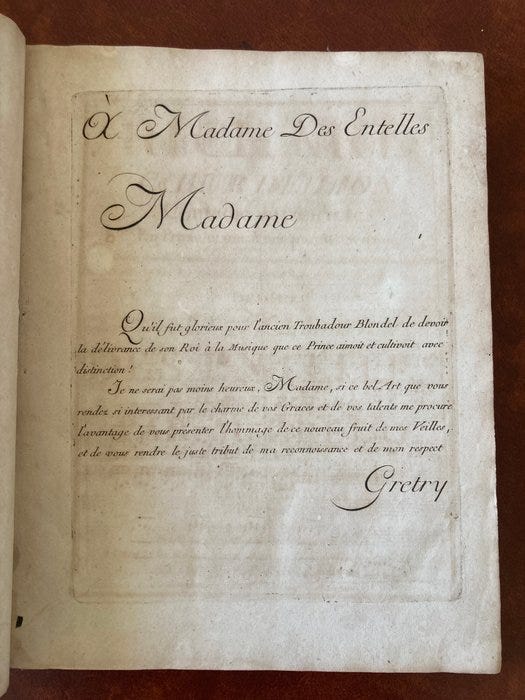 À Madame Des Entelles
Madame
Qu'il fut glorieux pour l'ancien Troubadour Blondel de devoir
la délivrance de son Roi à la Musique que ce Prince aimoit et cultivoit avec
distinction !
Je ne serai pas moins heureux, Madame, si ce bel Art que vous
rendez si interessant par le charme de vos Graces et de vos talents me procure
l'avantage de vous présenter l'hommage de ce nouveau fruit de mes Veilles,
et de vous rendre le juste tribut de ma reconnoissance et de mon respect
Gretry